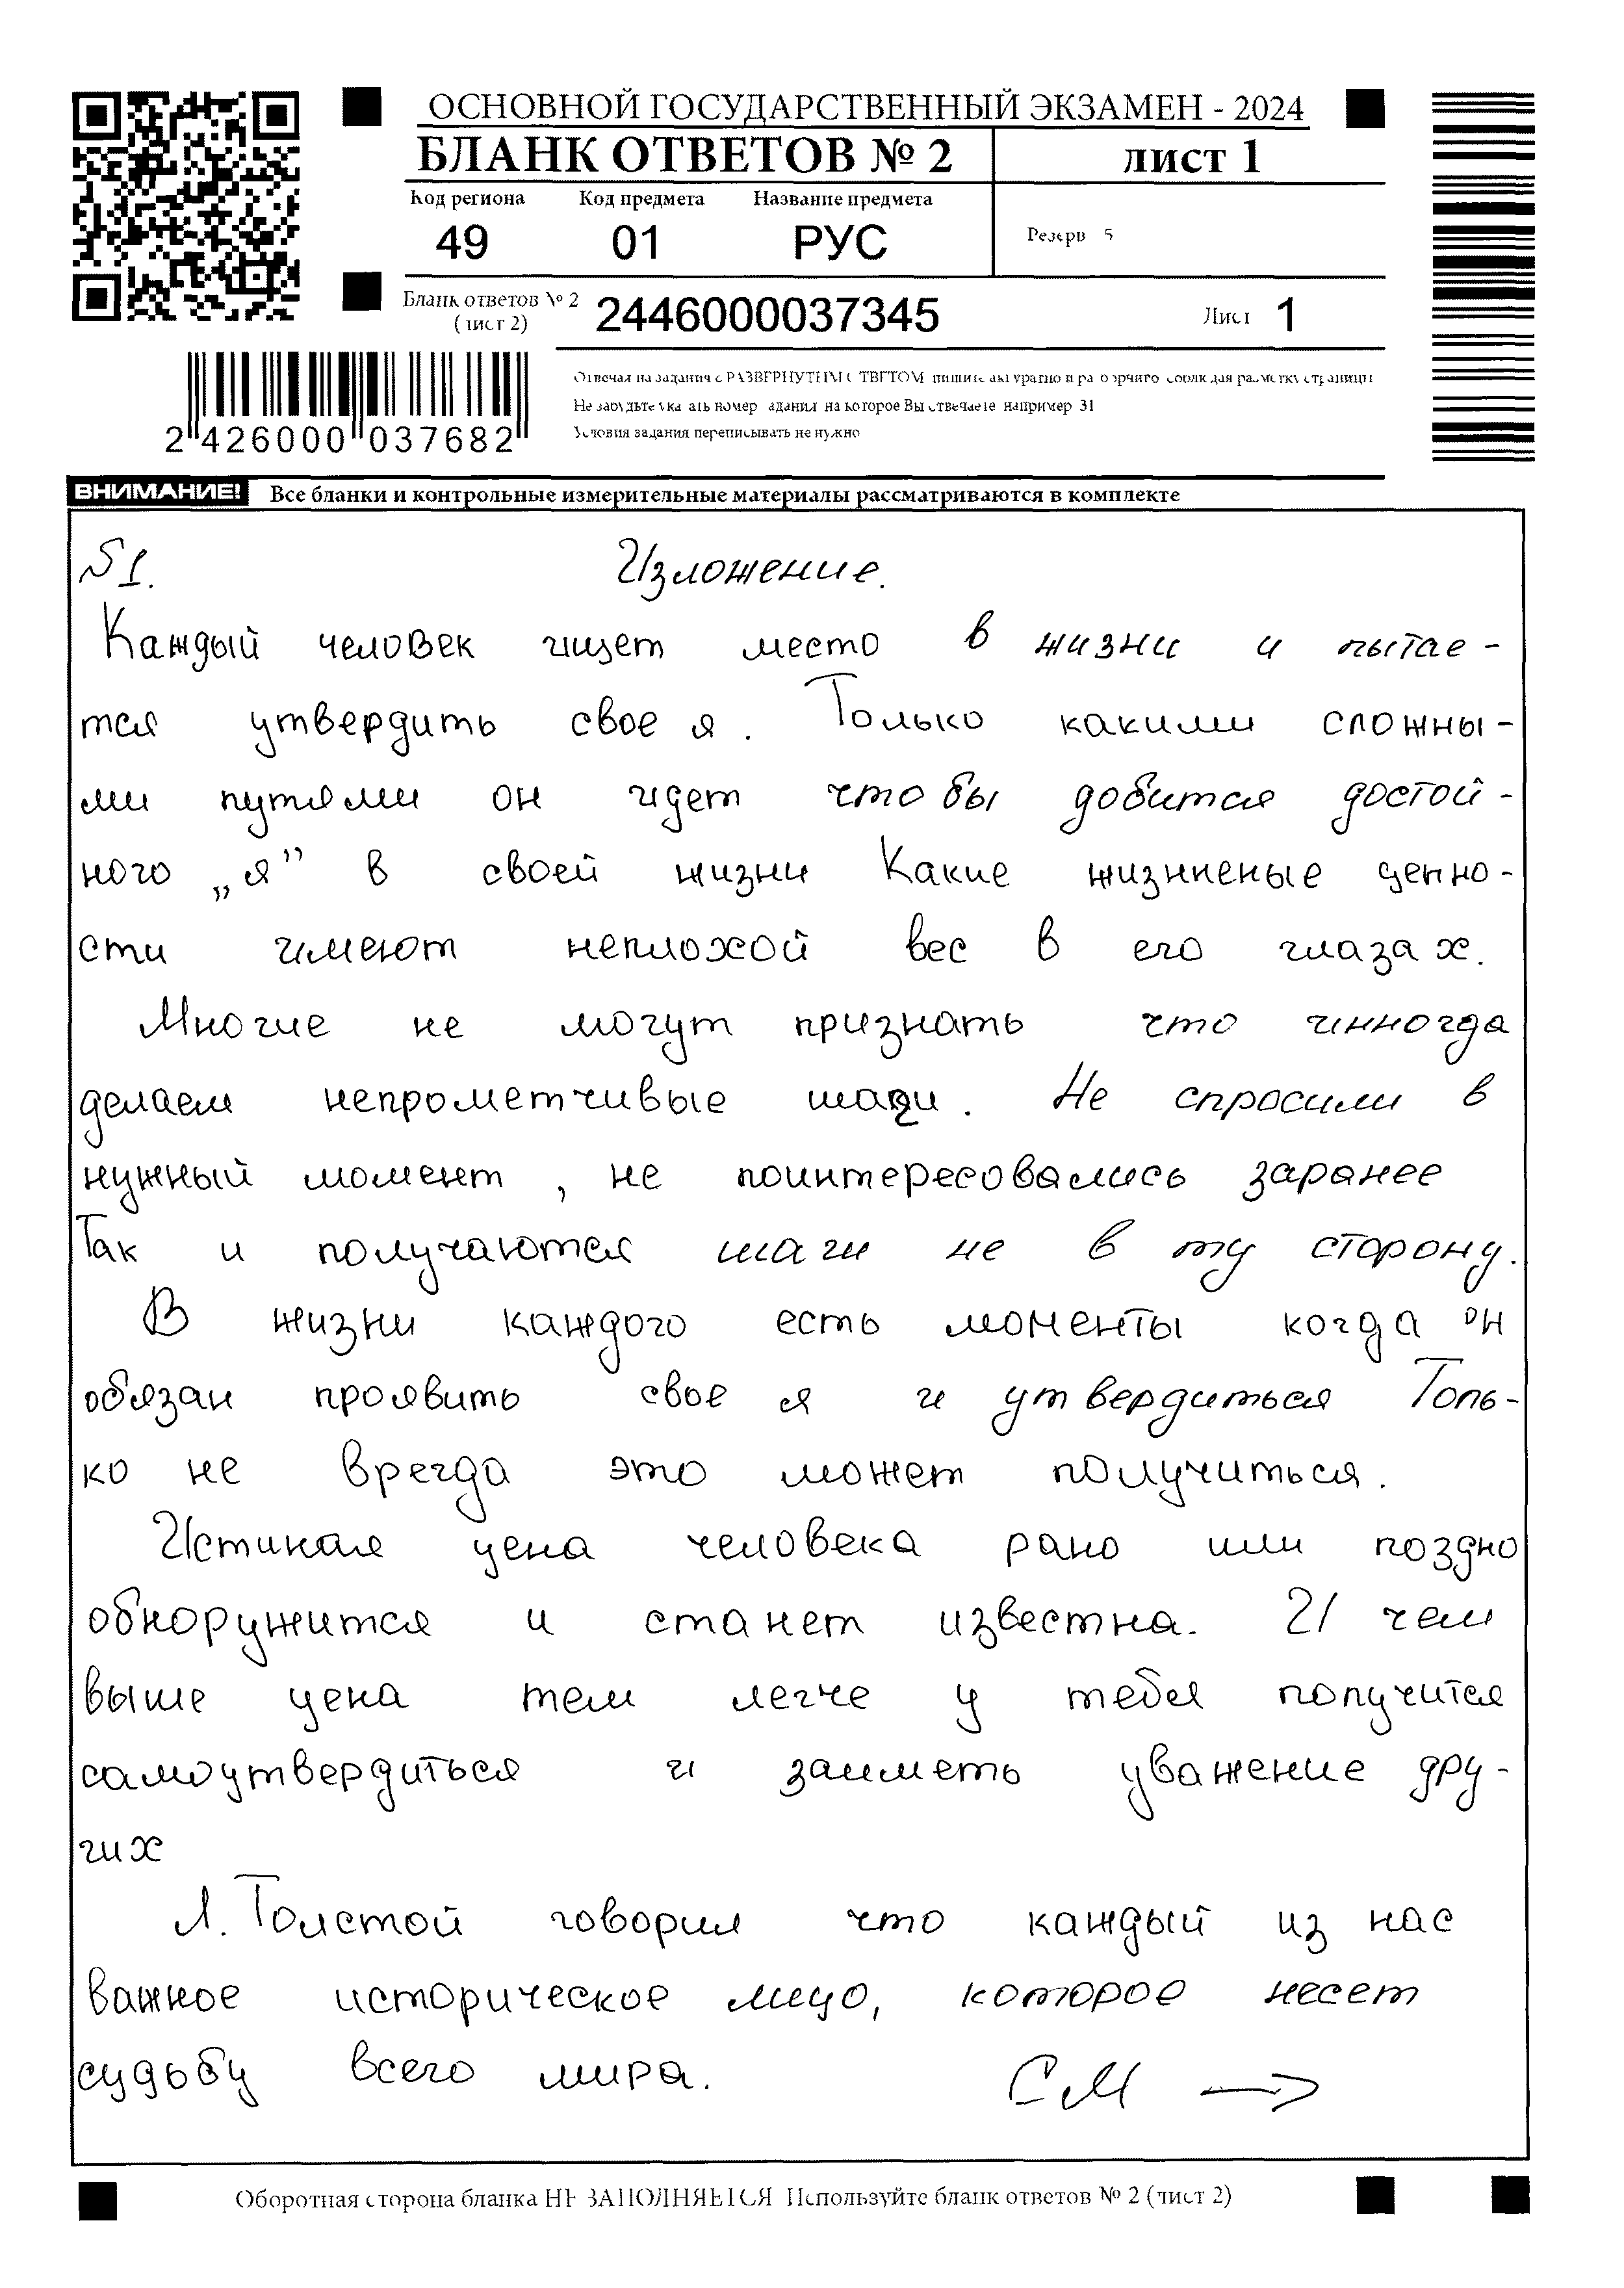 ОСНОВНОЙ ГОСУДАРСТВЕННЫЙ ЭКЗАМЕН - 2024
БЛАНК ОТВЕТОВ № 2 лист 1
Код региона Код предмета Название предмета
49 01 РУС
Резерв 5
Бланк ответов № 2 (лист 2) 2446000037345 Лист 1
2 426000 037682
Не забудьте указать номер задания на которое Вы отвечаете например 31
Условия задания переписывать не нужно
ВНИМАНИЕ! Все бланки и контрольные измерительные материалы рассматриваются в комплекте
№1. Изложение.
Каждый человек ищет место в жизни и пытае-
тся утвердить свое я. Только какими сложны-
ми путями он идет что бы добится достой-
ного „я” в своей жизни Какие жизниеные ценно-
сти имеют неплохой вес в его глазах.
Многие не могут признать что инногда
делаем непрометчивые шаги. Не спросили в
нужный момент, не поинтересовались заранее
Так и получаются шаги не в ту сторону.
В жизни каждого есть моменты когда он
обязан проявить свое я и утвердиться Толь-
ко не врегда это может получиться.
Истиная цена человека рано или поздно
обноружится и станет известна. И чем
выше цена тем легче у тебя получится
самоутвердиться и заиметь уважение дру-
гих
Л. Толстой говорил что каждый из нас
важное историческое лицо, которое несет
судьбу всего мира. СМ →
Оборотная сторона бланка НЕ ЗАПОЛНЯЕТСЯ Используйте бланк ответов № 2 (лист 2)